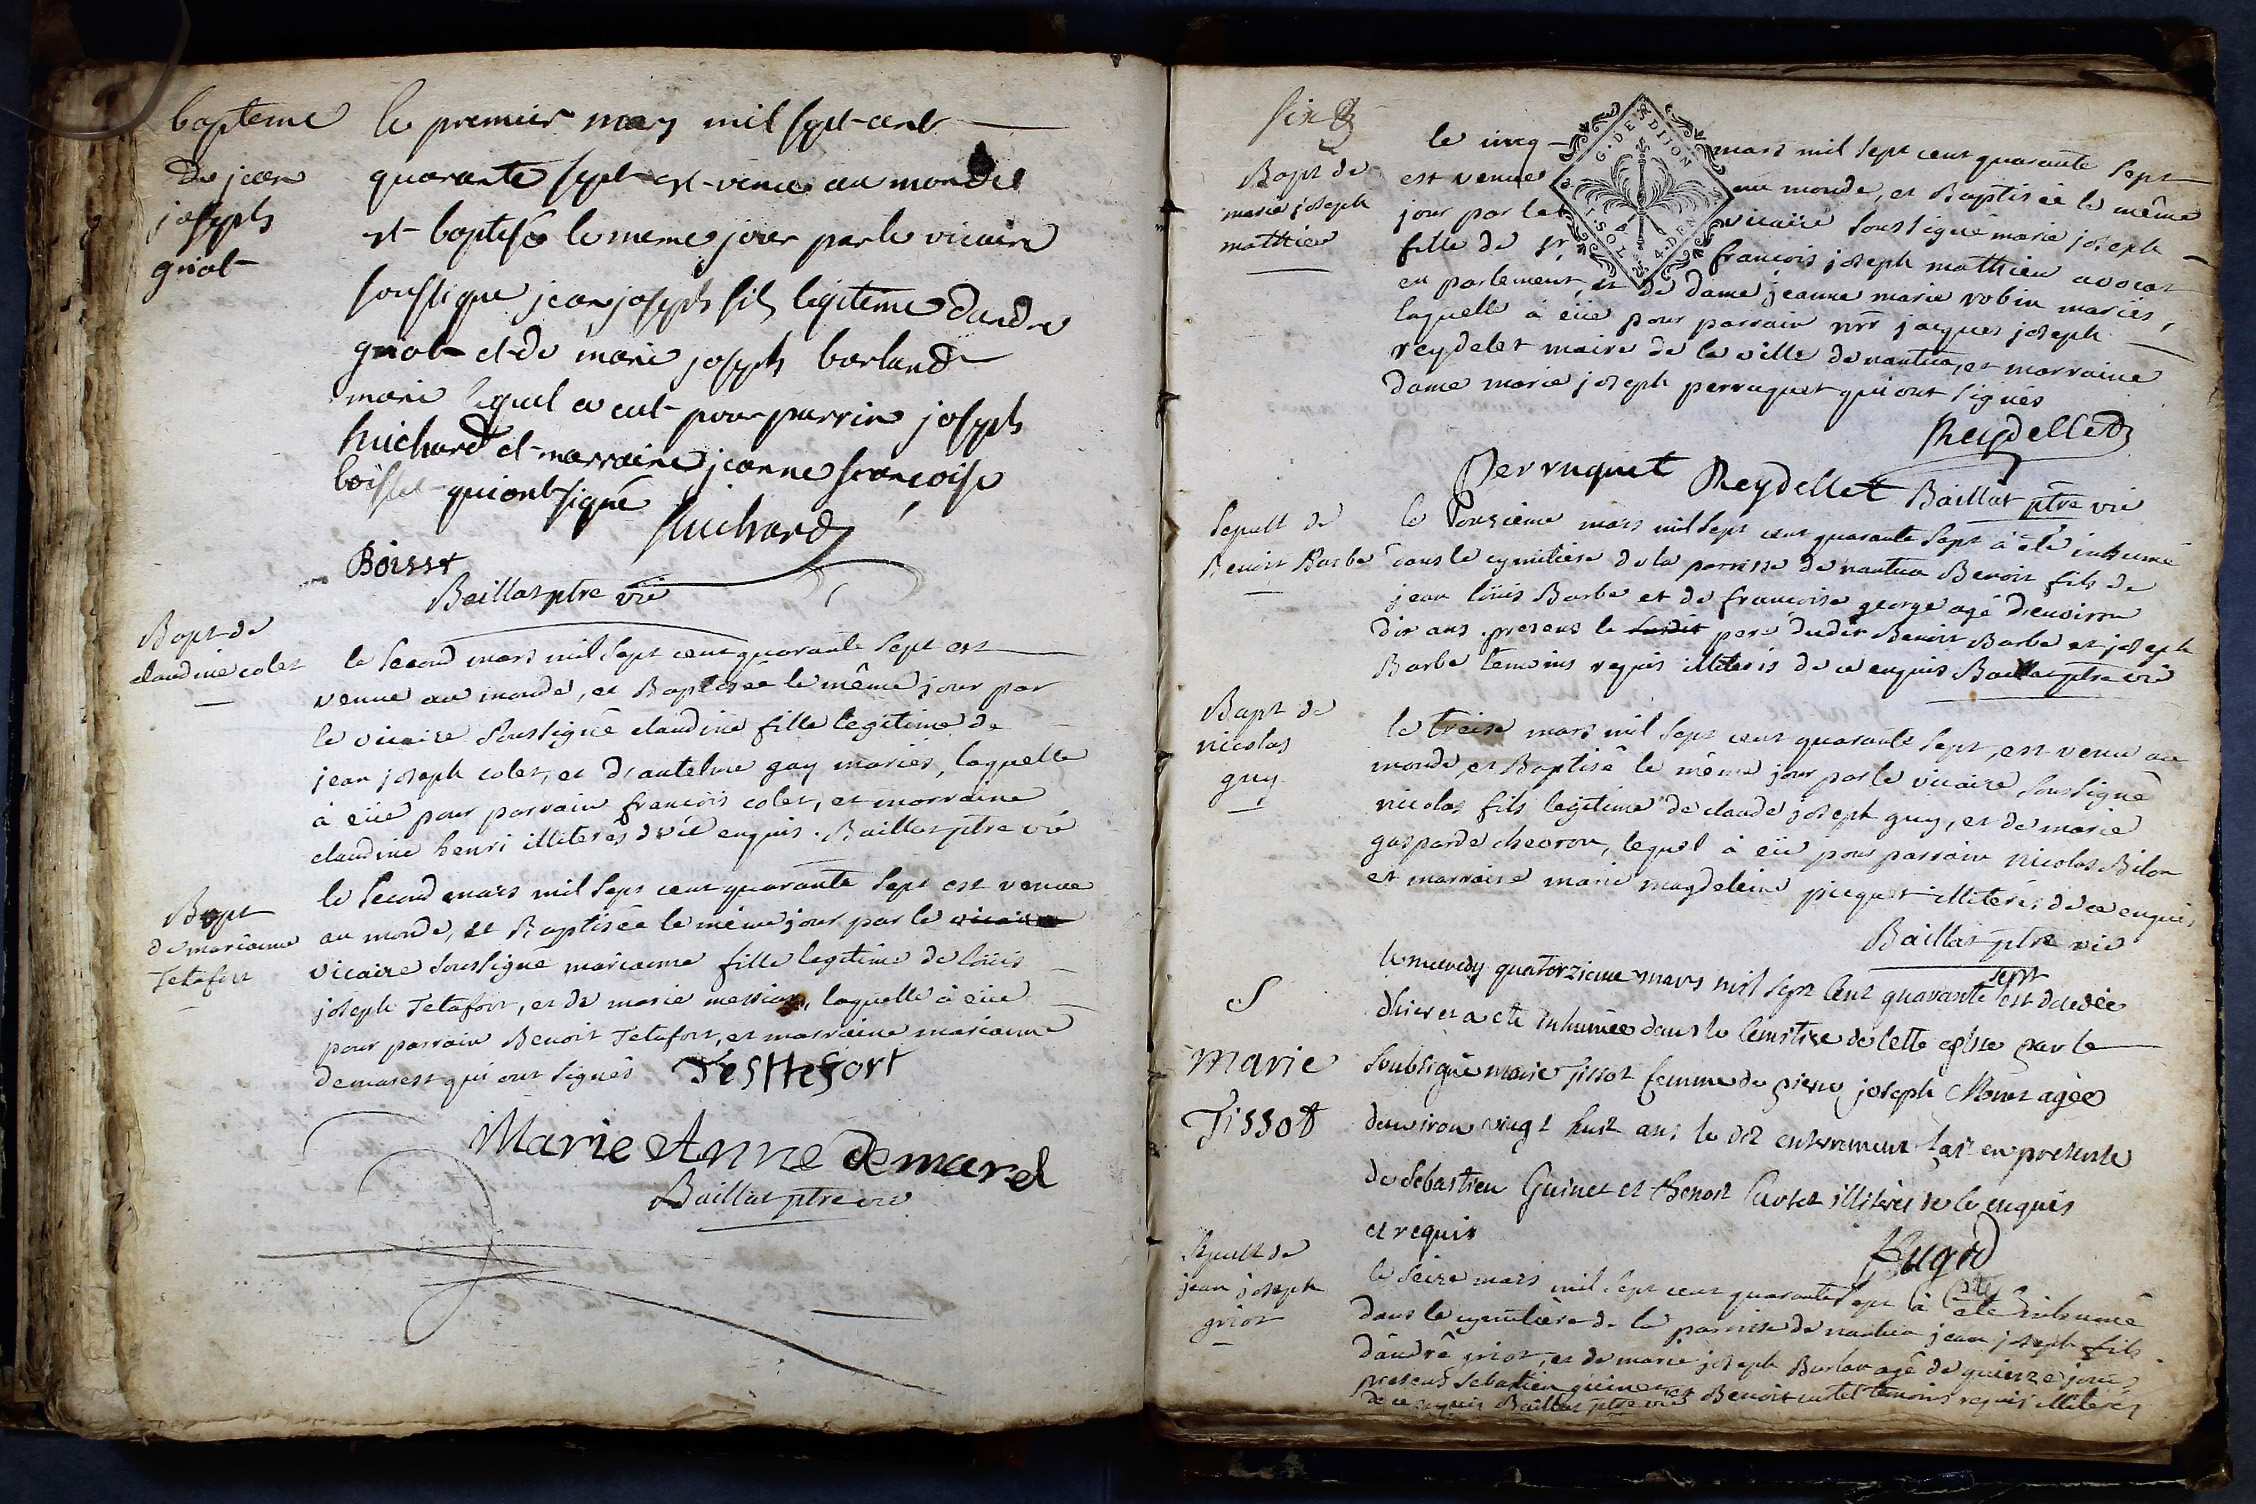 bapteme
de jean
joseph
griot
le premier mars mil sept cent
quarante sept est venu au monde et
et baptisé le meme jour par le vicaire
soussigné jean joseph fils legitime dandré
griot et de marie joseph borland
marié lequel a eut pour parrin joseph
huichard et marraine jeanne françoise
boisset qui ont signé
huichard
Boisst
Baillat ptre vié
Bapt de
claudine colet
le second mars mil sept cent quarante sept est
venue au monde, et Baptisée le même jour par
le vicaire soussigné claudine fille legitime de
jean joseph colet, et d'antelme gay mariés, laquelle
à eüe pour parrain françois colet, et marraine
claudine henri illiterés de ce enquis. Baillat ptre vié
Bapt
de marianne
Tetafort
le second mars mil sept cent quarante sept est venue
au monde, et Baptisée le même jour par le vicaire
vicaire soussigné marianne fille legitime de loüis
joseph Tetafort, et de marie messian, laquelle à eüe
pour parrain Benoit Tetafort, et marraine marianne
demarest qui ont signés Testtefort
Marie Anne demarest
Baillat ptre vié
six
G. DES DIJON
4. DEN
1. SOL
Bapt de
marie joseph
mathieu
le cinq mars mil sept cent quarante sept
est venue au monde, et Baptisée le même
jour par le vicaire soussigné marie joseph
fille de sr françois joseph mathieu avocat
en parlement, et de dame jeanne marie robin mariés,
laquelle à eüe pour parrain mr jacques joseph
reydelet maire de la ville de nantua, et marraine
dame marie joseph perruquet qui ont signés
Reydellet
Perruquet Reydellet Baillat ptre vié
Sepult de
Benoit Barbe
le onzième mars mil sept cent quarante sept à été inhumé
dans le cymitiere de la parroisse de nantua Benoit fils de
jean loüis Barbe et de françoise george agé d'environ
dix ans. presens le susdit pere dudit Benoit Barbe et joseph
Barbe temoins requis illiterés de ce enquis Baillat ptre vié
Bapt de
nicolas
guy
le treise mars mil sept cent quarante sept, est venu au
monde, et Baptisé le même jour par le vicaire soussigné
nicolas fils legitime de claude joseph guy, et de marie
gasparde chevron, lequel à eüe pour parrain nicolas Bilon
et marraine marie magdeleine picquet illiterés de ce enquis,
Baillat ptre vié
S
Marie
Tissot
le mercredy quatorzieme mars mil sept cent quarante sept est decedée
dhier et a eté inhumée dans le cemetire de cette eglise par le
soubsigné marie tissot femme de pierre joseph Monet agée
denviron vingt huit ans le dit enterrement fait en presence
de Sebastien Guinet et Benoit Cartet illiterés de ce enquis
et requis
Pugod
Sepult de
jean joseph
griot
le seize mars mil sept cent quarante sept à été inhumé
dans le cymitière de la parroisse de nantua jean joseph fils
d'andré griot, et de marie joseph Burlan agé de quinze jours
presens Sebastien guinet, et Benoit cartet temoins requis illiterés
de ce enquis Baillat ptre vié